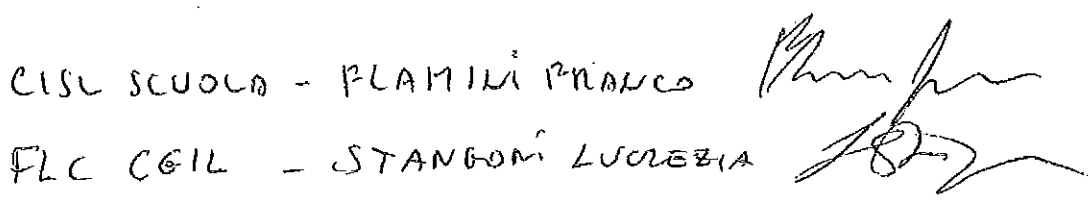 CISL SCUOLA - FLAMINI FRANCO
FLC CGIL - STANGONI LUCREZIA